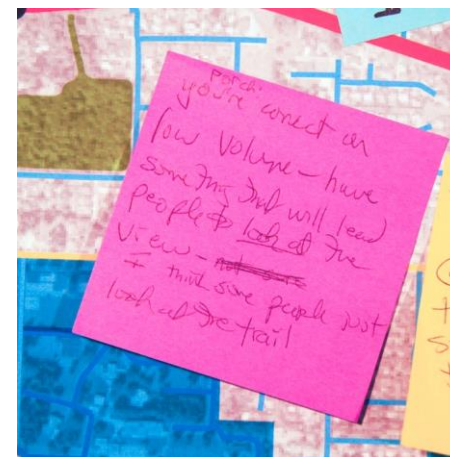 porch:
you're correct on
low volume - have
something that will lead
people to look at the
view -
I think some people just
look at the trail